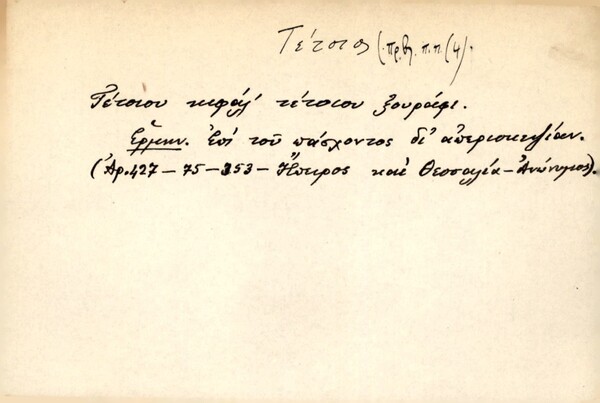 Τέτσιος (πρβ. π.π. (4).
Τέτσιου κιφάλ' τέτσιου ξουράφι.
Ἑρμην. Ἐπί τοῦ πάσχοντος δι' ἀπερισκεψίαν.
(Ἀρ. 427 – 75 – 353 – Ἤπειρος καί Θεσσαλία – Ἀνώνυμος).